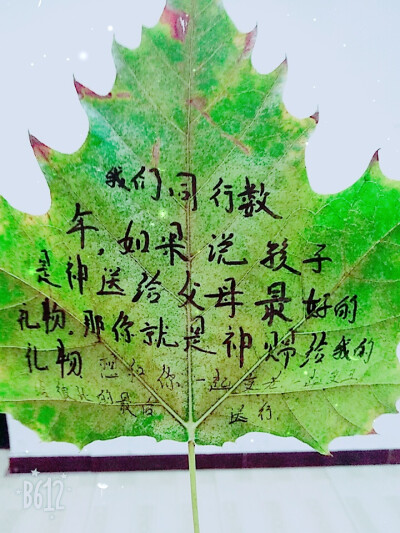 我们同行数
年,如果说孩子
是神送给父母最好的
礼物,那你就是神赐给我的
礼物
你一起
最后
B612